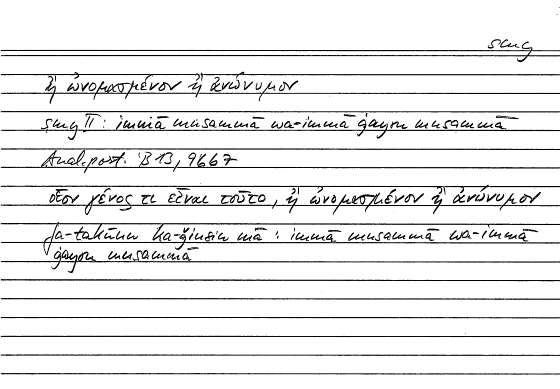 smy
ἢ ὠνομασμένον ἢ ἀνώνυμον
smy II : immā musammā wa-immā ġayru musammā
Anal. post. B 13, 96b7
οἷον γένος τι εἶναι τοῦτο, ἢ ὠνομασμένον ἢ ἀνώνυμον
fa-takūnu ka-ǧinsin mā : immā musammā wa-immā
ġayru musammā